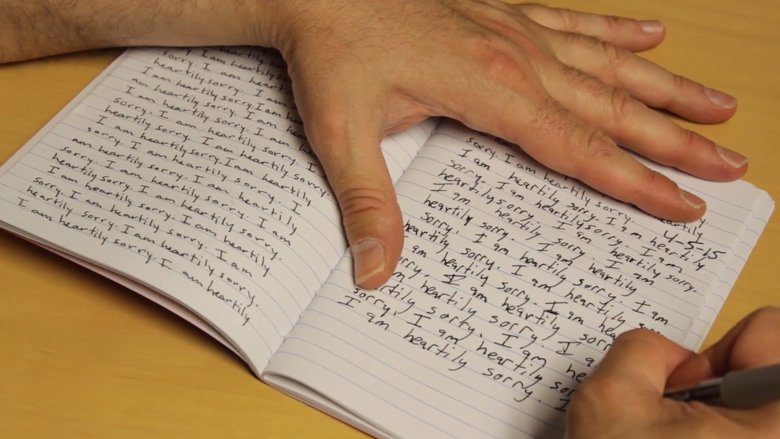 I am heartily sorry. I am
heartily sorry. I am heartily
am heartily sorry. I am
sorry. I am heartily sorry.
I am heartily sorry. I am heartily
sorry. I am heartily sorry. I
am heartily sorry. I am heartily
heartily sorry. I am heartily
I am heartily sorry. I am
sorry. I am heartily sorry.
heartily sorry. I am heartily
I am heartily sorry. I am heartily
sorry. I am heartily sorry
4-5-15
I am heartily sorry. I am heartily
sorry. I am heartily sorry. I am
heartily sorry. I am heartily sorry.
I am heartily sorry. I am
heartily sorry. I am heartily
sorry. I am heartily sorry. I am
heartily sorry. I am heartily
am heartily sorry. I am
sorry. I am heartily sorry.
am heartily sorry. I am
sorry. I am heartily
I am heartily sorry. I